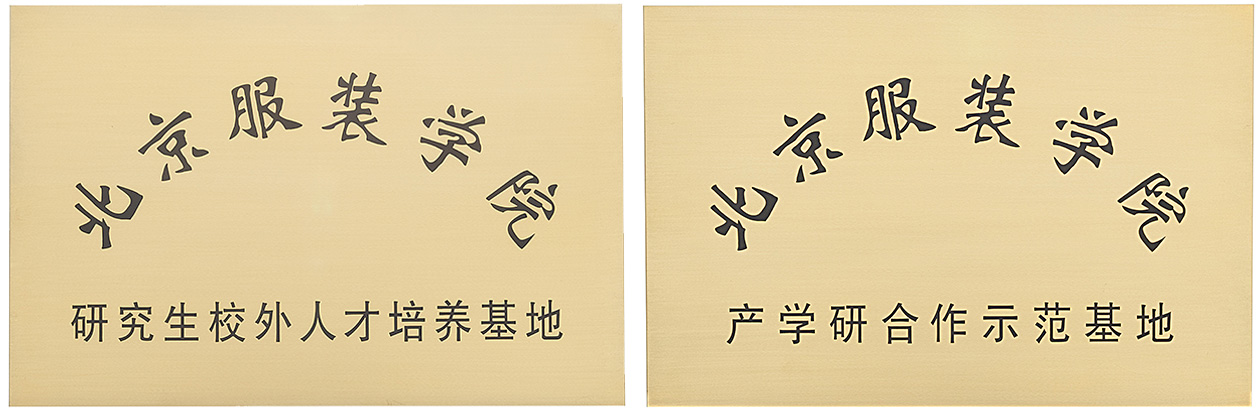 北京服装学院
研究生校外人才培养基地
北京服装学院
产学研合作示范基地